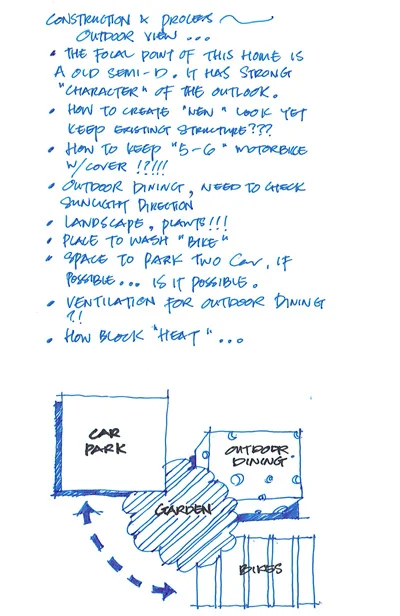 CONSTRUCTION & PROCESS
OUTDOOR VIEW ...
• THE FOCAL POINT OF THIS HOME IS
A OLD SEMI-D. IT HAS STRONG
"CHARACTER" OF THE OUTLOOK.
• HOW TO CREATE "NEW" LOOK YET
KEEP EXISTING STRUCTURE???
• HOW TO KEEP "5-6" MOTORBIKE
W/COVER !?!!!
• OUTDOOR DINING, NEED TO CHECK
SUNLIGHT DIRECTION
• LANDSCAPE, PLANTS!!!
• PLACE TO WASH "BIKE"
• SPACE TO PARK TWO CAR, IF
POSSIBLE... IS IT POSSIBLE.
• VENTILATION FOR OUTDOOR DINING
?!
• HOW BLOCK "HEAT" ...
CAR
PARK
OUTDOOR
DINING
GARDEN
BIKES